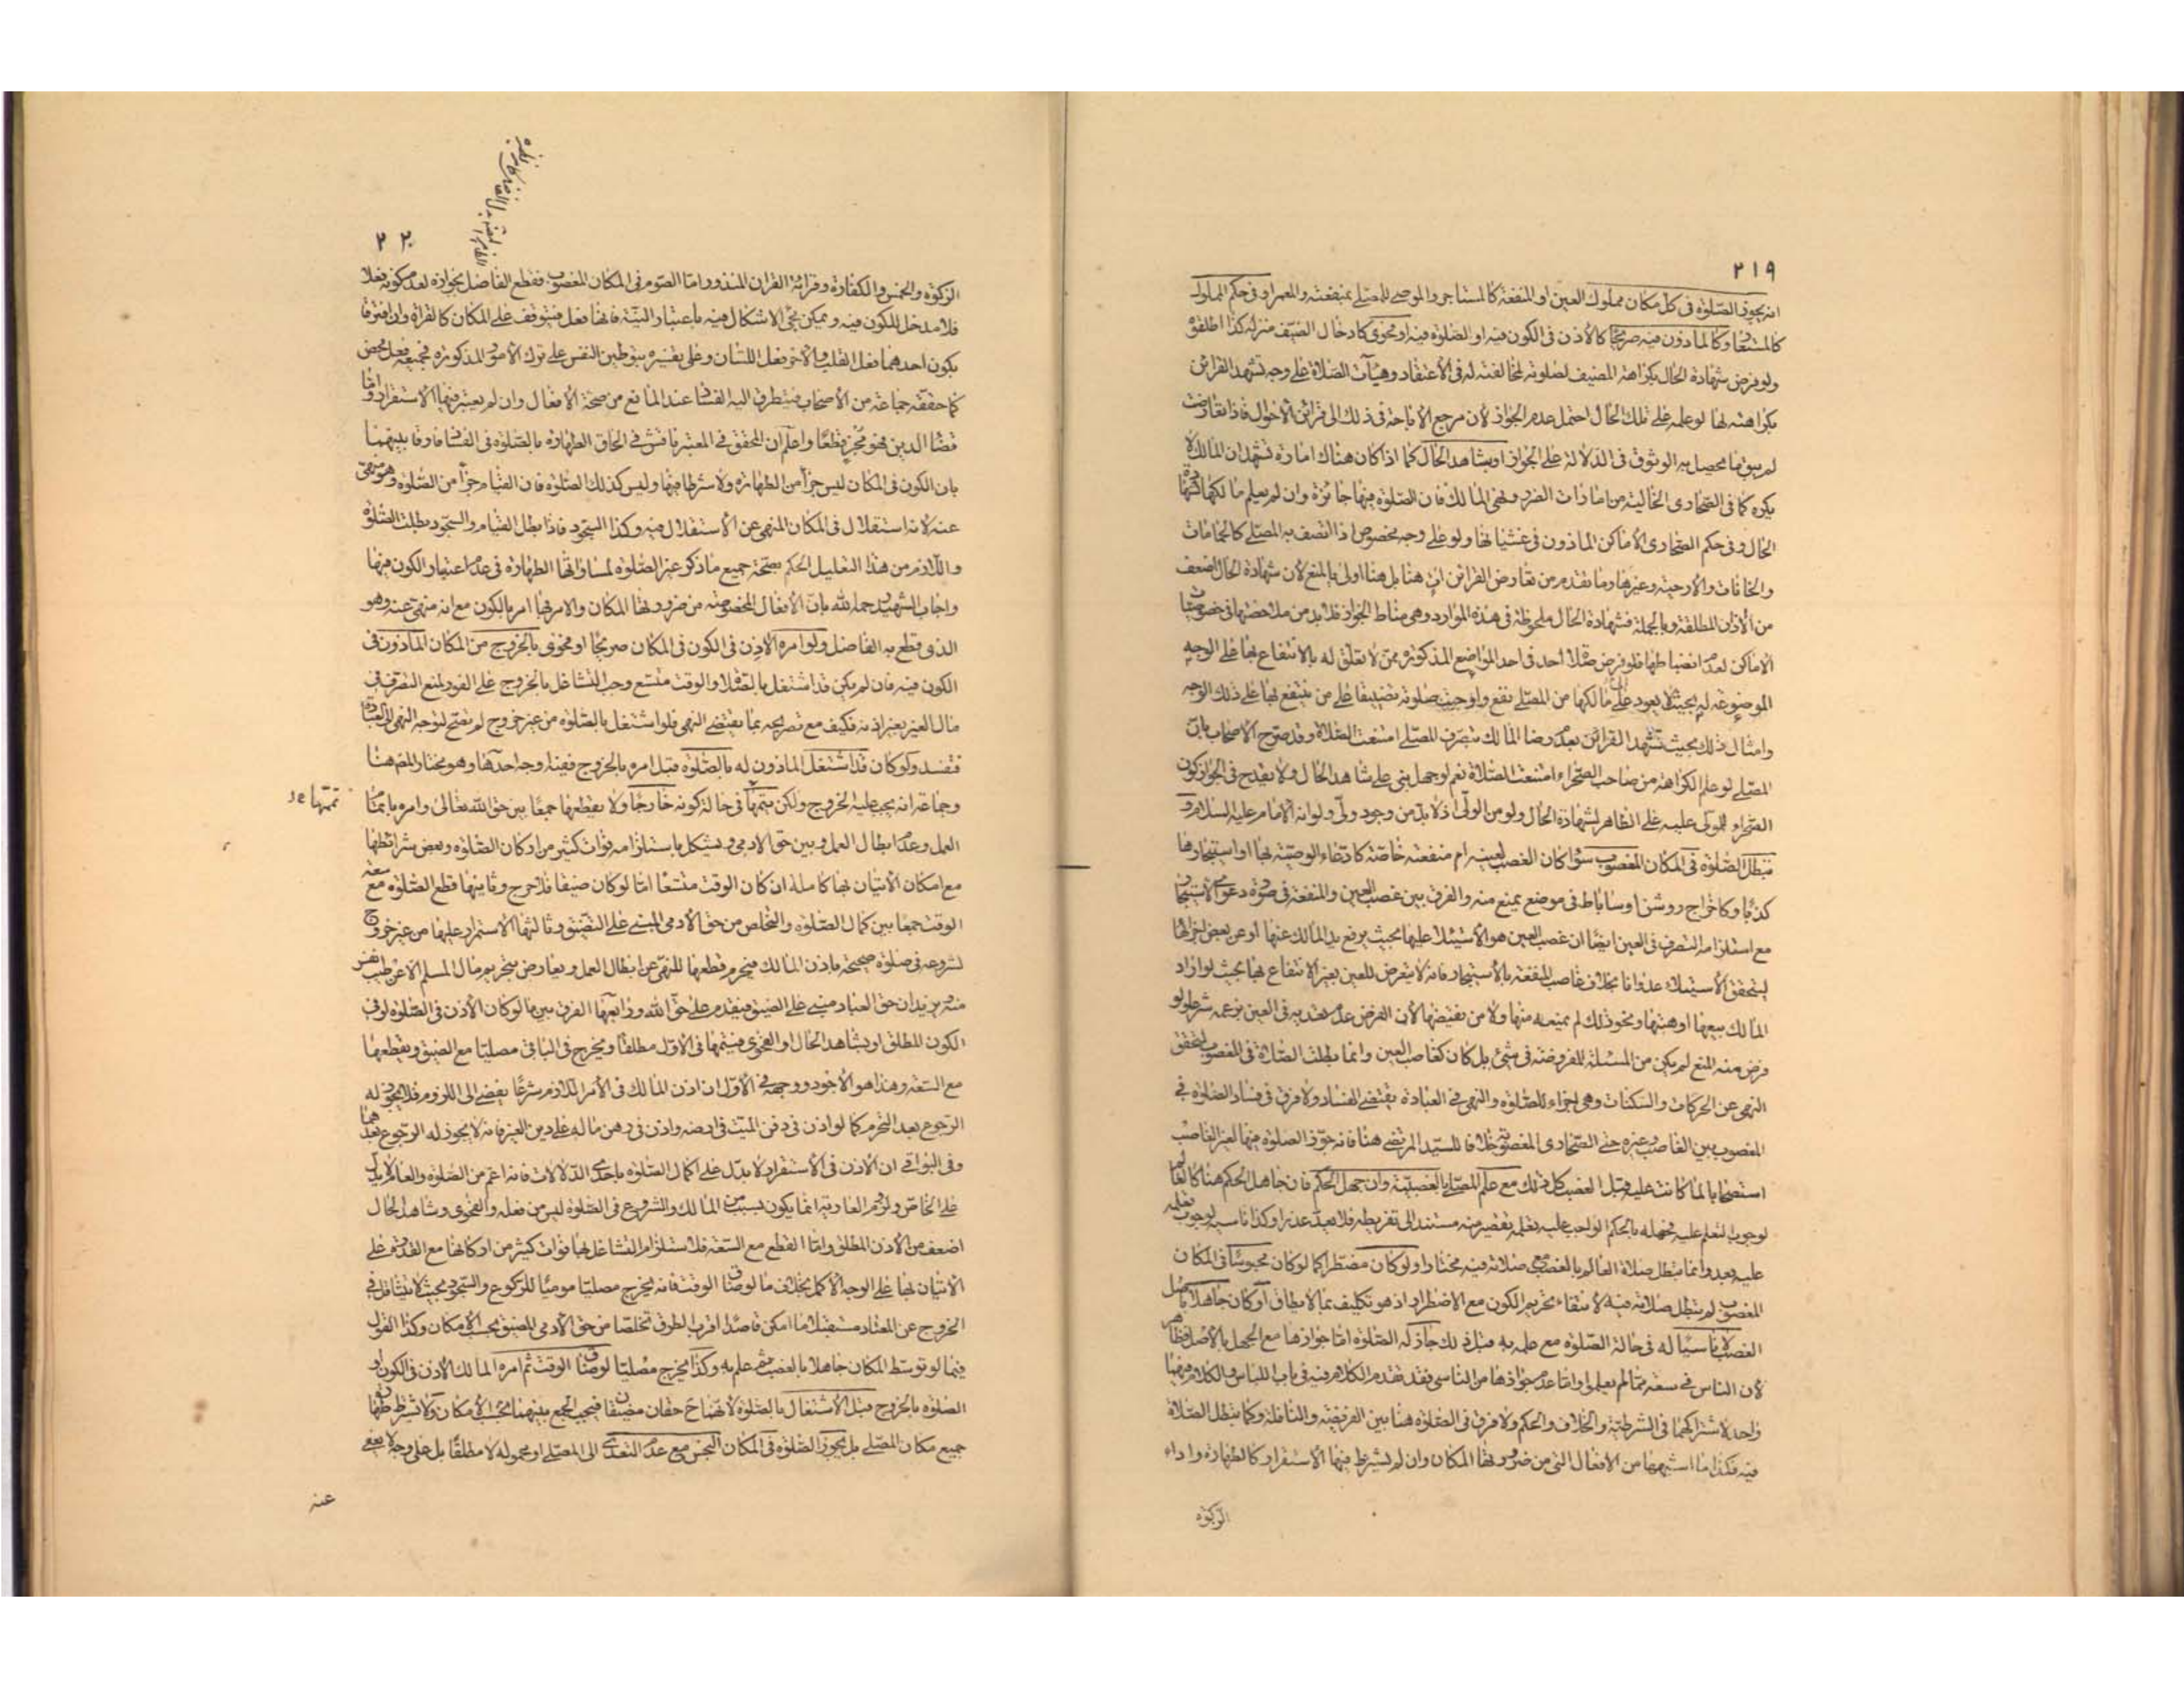 ٢١٩
انه يجوز الصلوة فى كل مكان مملوك العين او المنفعة كالمستاجر والموصى للمصلى بمنفعته والمعمر او فى حكم المملوك
كالمستعار وكالماذون فيه صريحا كالاذن فى الكون فيه او الصلوة فيه او فحوى كادخال الضيف منزله كذا اطلقوه
ولو فرض شهادة الحال بكراهة المضيف لصلوته لمخالفته له فى الاعتقاد وهيآت الصلاة على وجه تشهد القرائن
بكراهته لها لو علمه على تلك الحال احتمل عدم الجواز لان مرجع الاباحة فى ذلك الى قرائن الاحوال فاذا تعارضت
لم يبق ما يحصل به الوثوق فى الدلالة على الجواز او بشاهد الحال كما اذا كان هناك امارة تشهد ان المالك لا
يكره كما فى الصحارى الخالية من امارات الضرر ونهى المالك فان الصلوة فيها جائزة وان لم يعلم مالكها لشهادة
الحال وفى حكم الصحارى الاماكن الماذون فى غشيانها ولو على وجه مخصوص اذا اتصف به المصلى كالحمامات
والخانات والارحية وغيرها وما تقدم من تعارض القرائن آت هنا بل هنا اولى بالمنع لان شهادة الحال اضعف
من الاذن المطلقة وبالجملة فشهادة الحال ملحوظة فى هذه الموارد وهى مناط الجواز فلا بد من ملاحظتها فى خصوصيات
الاماكن لعدم انضباطها فلو فرض صلاة احد فى احد المواضع المذكورة ممن لا تعلق له بالانتفاع بها على الوجه
الموضوعة له بحيث لا يعود على مالكها من المصلى نفع واوجبت صلوته تضييقا على من ينتفع بها على ذلك الوجه
وامثال ذلك بحيث تشهد القرائن بعدم رضا المالك بتصرف المصلى امتنعت الصلاة وقد صرح الاصحاب بان
المصلى لو علم الكراهة من صاحب الصحراء امتنعت الصلاة نعم لو جهل بنى على شاهد الحال ولا يقدح فى الجواز كون
الصحراء لمولى عليه على الظاهر لشهادة الحال ولو من الولى اذ لا بد من وجود ولى ولو انه الامام عليه السلام و
تبطل الصلوة فى المكان المغصوب سواء كان الغصب لعينه ام منفعته خاصة كادعاء الوصية بها او استيجارها
كذبا وكاخراج روشن او ساباط فى موضع يمنع منه والفرق بين غصب العين والمنفعة فى صورة دعوى الاستيجار
مع استلزامه التصرف فى العين ايضا ان غصب العين هو الاستيلاء عليها بحيث يرفع يد المالك عنها او عن بعض اجزائها
ليتحقق الاستيلاء عدوانا بخلاف غاصب المنفعة بالاستيجار فانه لا يتعرض للعين بغير الانتفاع بها بحيث لو اراد
المالك بيعها او هبتها ونحو ذلك لم يمنعه منها ولا من تقبيضها لان الفرض عدم تعديه فى العين بزعمه شرعا ولو
فرض منه المنع لم يكن من المسئلة المفروضة فى شئ بل كان كغاصب العين وانما بطلت الصلاة فى المغصوب لتحقق
النهى عن الحركات والسكنات وهى اجزاء للصلوة والنهى فى العبادة يقتضى الفساد ولا فرق فى فساد الصلوة فى
المغصوب بين الغاصب وغيره حتى الصحارى المغصوبة خلافا للسيد المرتضى هنا فانه جوز الصلوة فيها لغير الغاصب
استصحابا لما كانت عليه قبل الغصب كل ذلك مع علم المصلى بالغصبية وان جهل الحكم فان جاهل الحكم هنا كالعالم
لوجوب التعلم عليه فجهله بالحكم الواجب عليه تعلمه تقصير منه مستند الى تفريطه فلا يعد عذرا وكذا ناسيه لوجوب تعلمه
عليه بعد وانما تبطل صلاة العالم بالغصب مع صلاته فيه مختارا ولو كان مضطرا كما لو كان محبوسا فى المكان
المغصوب لم تبطل صلاته فيه لانتفاء تحريم الكون مع الاضطرار اذ هو تكليف بما لا يطاق او كان جاهلا باصل
الغصب لا ناسيا له فى حالة الصلوة مع علمه به قبل ذلك جاز له الصلوة اما جوازها مع الجهل بالاصل فظاهر
لان الناس فى سعة مما لم يعلموا واما عدم جوازها من الناسى فقد تقدم الكلام فيه فى باب اللباس والكلام فيهما
واحد لاشتراكهما فى الشرطية والخلاف والحكم ولا فرق فى الصلوة هنا بين الفريضة والنافلة وكما تبطل الصلاة
فيه فكذا ما اشبهها من الافعال التى من ضرورتها المكان وان لم يشترط فيها الاستقرار كالطهارة واداء
الزكوة
٢٢٠
الزكوة والخمس والكفارة وقرائة القران المنذور اما الصوم فى المكان المغصوب فقطع الفاضل بجوازه لعدم كونه فعلا
فلا مدخل للكون فيه ويمكن مجئ الاشكال فيه باعتبار النية فانها فعل فتتوقف على المكان كالقراءة وان افترقا
بكون احدهما فعل القلب والاخر فعل اللسان وعلى تفسيره بتوطين النفس على ترك الامور المذكورة فجميعه فعل محض
كما حققه جماعة من الاصحاب فيتطرق اليه الفساد عند المانع من صحة الافعال وان لم يعتبر فيها الاستقرار واما
قضاء الدين فهو مجز قطعا واعلم ان المحقق فى المعتبر ناقش فى الحاق الطهارة بالصلوة فى الفساد فارقا بينهما
بان الكون فى المكان ليس جزأ من الطهارة ولا شرطا فيها وليس كذلك الصلوة فان القيام جزأ من الصلوة وهو منهى
عنه لانه استقلال فى المكان المنهى عن الاستقلال فيه وكذا السجود فاذا بطل القيام والسجود بطلت الصلوة
واللازم من هذا التعليل الحكم بصحة جميع ما ذكر غير الصلوة لمساواتها الطهارة فى عدم اعتبار الكون فيها
واجاب الشهيد رحمه الله بان الافعال المخصوصة من ضرورتها المكان والامر بها امر بالكون مع انه منهى عنه وهو
الذى قطع به الفاضل ولو امره الاذن فى الكون فى المكان صريحا او فحوى بالخروج من المكان الماذون فى
الكون فيه فان لم يكن قد اشتغل بالصلاة والوقت متسع وجب التشاغل بالخروج على الفور لمنع التصرف فى
مال الغير بغير اذنه فكيف مع تصريحه بما يقتضى النهى فلو اشتغل بالصلوة من غير خروج لم تصح لتوجه النهى الى العبادة
فتفسد ولو كان قد اشتغل الماذون له بالصلوة قبل امره بالخروج ففيه اوجه احدها وهو مختار المصنف هنا
وجماعة انه يجب عليه الخروج ولكن يتمها فى حالة كونه خارجا ولا يقطعها جمعا بين حق الله تعالى وامره باتمام
تمتها
العمل وعدم ابطال العمل وبين حق الادمى ويشكل باستلزامه فوات كثير من اركان الصلوة وبعض شرائطها
مع امكان الاتيان بها كاملة ان كان الوقت متسعا اما لو كان ضيقا فلا حرج وثانيها قطع الصلوة مع سعة
الوقت جمعا بين كمال الصلوة والتخلص من حق الادمى المبنى على التضييق وثالثها الاستمرار عليها من غير خروج
لشروعه فى صلوة صحيحة باذن المالك فيحرم قطعها للنهى عن ابطال العمل ويعارض بتحريم مال المسلم الا عن طيب نفس
منه ويزيد ان حق العباد مبنى على الضيق فيقدم على حق الله ورابعها الفرق بين ما لو كان الاذن فى الصلوة او فى
الكون المطلق او بشاهد الحال او الفحوى فيتمها فى الاول مطلقا ويخرج فى الباقى مصليا مع الضيق ويقطعها
مع السعة وهذا هو الاجود ووجهه فى الاول ان اذن المالك فى الامر اللازم شرعا يفضى الى اللزوم فلا يجوز له
الرجوع بعد التحرم كما لو اذن فى دفن الميت فى ارضه واذن فى رهن ماله على دين الغير فانه لا يجوز له الرجوع بعدهما
وفى البواقى ان الاذن فى الاستقرار لا يدل على اكمال الصلوة باحدى الدلالات فانه اعم من الصلوة والعام لا يدل
على الخاص ولزوم العارية انما يكون بسبب من المالك والشروع فى الصلوة ليس من فعله والفحوى وشاهد الحال
اضعف من الاذن المطلق واما القطع مع السعة فلاستلزام التشاغل بها فوات كثير من اركانها مع القدرة على
الاتيان بها على الوجه الاكمل بخلاف ما لو ضاق الوقت فانه يخرج مصليا موميا للركوع والسجود بحيث لا يتثاقل فى
الخروج عن المعتاد مستقبلا ما امكن قاصدا اقرب الطرق تخلصا من حق الادمى المضيق بحسب الامكان وكذا القول
فيما لو توسط المكان جاهلا بالغصب ثم علم به وكذا يخرج مصليا لو ضاق الوقت ثم امره المالك الاذن فى الكون او
الصلوة بالخروج قبل الاشتغال بالصلوة لاتضاح حقان مضيقان فيجب الجمع بينهما بحسب الامكان ولا تشترط طهارة
جميع مكان المصلى بل يجوز الصلوة فى المكان النجس مع عدم التعدى الى المصلى او محموله لا مطلقا بل على وجه لا يعفى
عنه